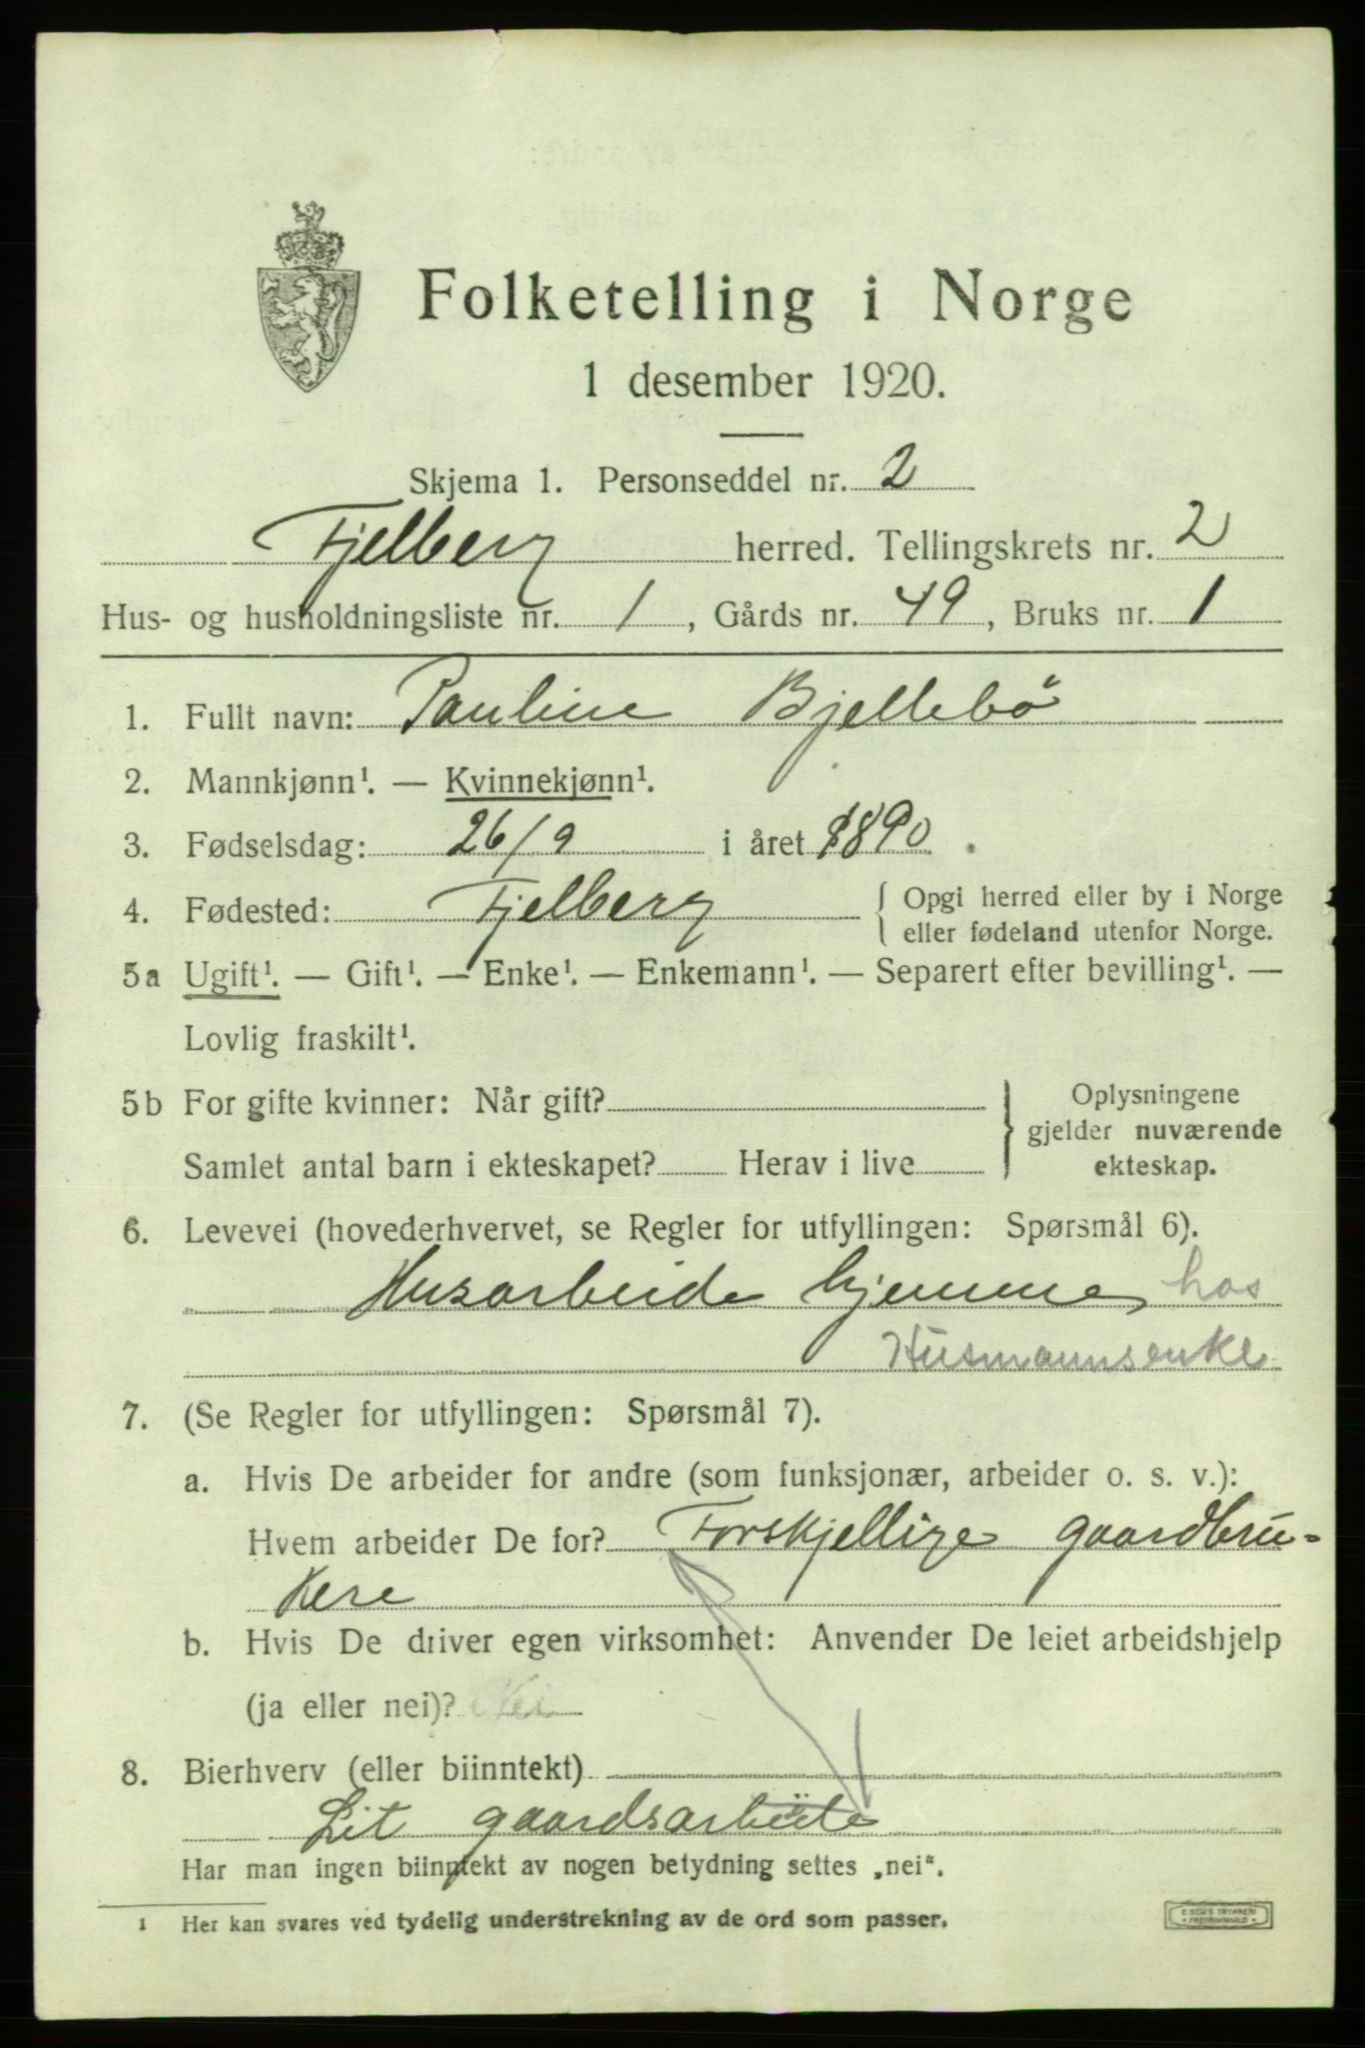 Folketelling i Norge
1 desember 1920.
Skjema 1. Personseddel nr. 2
Fjelberg herred. Tellingskrets nr. 2
Hus- og husholdningsliste nr. 1, Gårds nr. 49, Bruks nr. 1
1. Fullt navn: Pauline Bjellebö
2. Mannkjønn¹. — Kvinnekjønn¹.
3. Fødselsdag: 26/9 i året 1890.
4. Fødested: Fjelberg { Opgi herred eller by i Norge
eller fødeland utenfor Norge.
5a Ugift¹. — Gift¹. — Enke¹. — Enkemann¹. — Separert efter bevilling¹. —
Lovlig fraskilt¹.
5b For gifte kvinner: Når gift?
Samlet antal barn i ekteskapet? Herav i live
} Oplysningene
gjelder nuværende
ekteskap.
6. Levevei (hovederhvervet, se Regler for utfyllingen: Spørsmål 6).
Husarbeide hjemme, hos
Husmannsenke
7. (Se Regler for utfyllingen: Spørsmål 7).
a. Hvis De arbeider for andre (som funksjonær, arbeider o. s. v.):
Hvem arbeider De for? Forskjellige gaardbru-
kere
b. Hvis De driver egen virksomhet: Anvender De leiet arbeidshjelp
(ja eller nei)? Nei
8. Bierhverv (eller biinntekt)
Lit gaardsarbeide
Har man ingen biinntekt av nogen betydning settes „nei".
1 Her kan svares ved tydelig understrekning av de ord som passer.